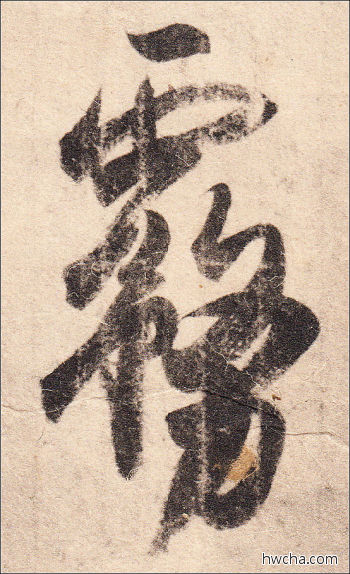 霧
hwcha.com